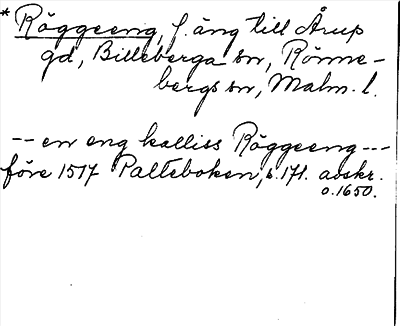 * Röggeeng, f. äng till Årup
gd, Billeberga sn, Rönne-
bergs hd, Malm. l.
-- en eng kalliss Röggeeng ---
före 1517 Palteboken, s. 171. avskr.
o. 1650.